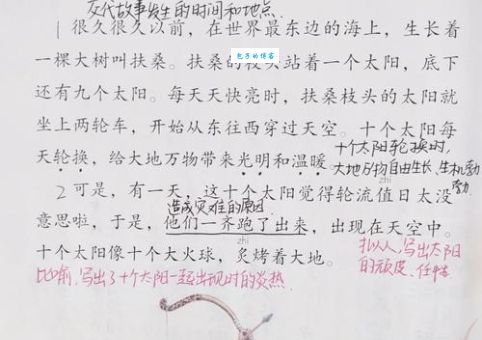 交代故事发生的时间和地点.
1 很久很久以前，在世界最东边的海上，生长着
一棵大树叫扶桑。扶桑的枝头站着一个太阳，底下
包子的博客
还有九个太阳。每天天快亮时，扶桑枝头的太阳就
坐上两轮车，开始从东往西穿过天空。十个太阳每
十个太阳轮换时,
天轮换，给大地万物带来光明和温暖。
大地万物自由生长,生机勃
勃.
zhí
2 可是，有一天，这十个太阳觉得轮流值日太没
造成灾难的原因
意思啦，于是，他们一齐跑了出来，出现在天空中。
zhì
十个太阳像十个大火球，炙烤着大地。
拟人,写出太阳
的顽皮、任性
比喻,写出了十个太阳一起出现时的炎热.